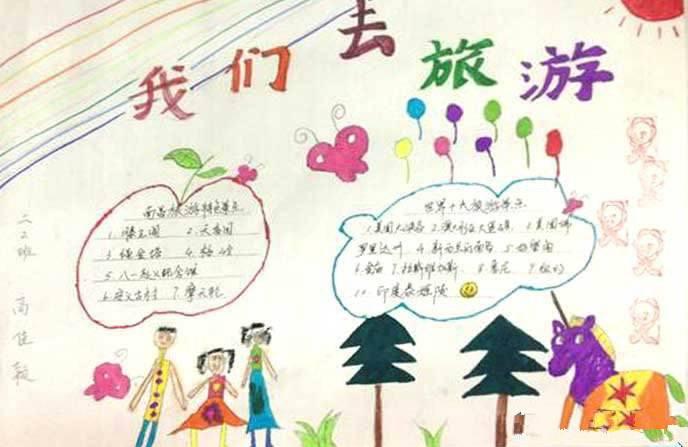 我们去旅游
南昌旅游特色景点
1.滕王阁 2.天香园
3.绳金塔 4.梅岭
5.八一起义纪念馆
6.安义古村 7.摩天轮
世界十大旅游景点
1.美国大峡谷 2.澳大利亚大堡礁 3.美国佛
罗里达州 4.新西兰南岛 5.好望角
6.金庙 7.拉斯维加斯 8.悉尼 9.纽约
10.印度泰姬陵
二2班 高佳毅